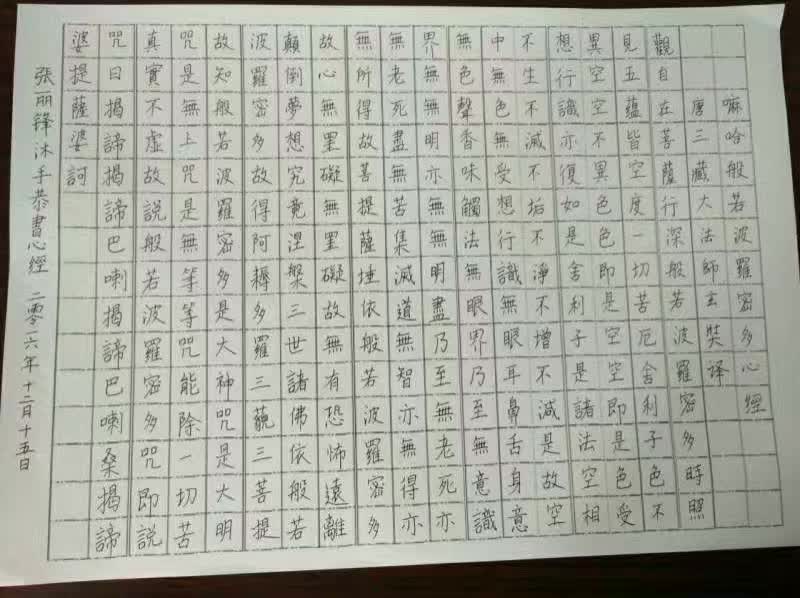 嘛哈般若波羅密多心經
唐三藏大法師玄奘譯
觀自在菩薩行深般若波羅密多時照
見五蘊皆空度一切苦厄舍利子色不
異空空不異色色即是空空即是色受
想行識亦復如是舍利子是諸法空相
不生不滅不垢不淨不增不減是故空
中無色無受想行識無眼耳鼻舌身意
無色聲香味觸法無眼界乃至無意識
界無無明亦無無明盡乃至無老死亦
無老死盡無苦集滅道無智亦無得亦
無所得故菩提薩埵依般若波羅密多
故心無罣礙無罣礙故無有恐怖遠離
顛倒夢想究竟涅槃三世諸佛依般若
波羅密多故得阿耨多羅三藐三菩提
故知般若波羅密多是大神咒是大明
咒是無上咒是無等等咒能除一切苦
真實不虛故說般若波羅密多咒即說
咒曰揭諦揭諦巴喇揭諦巴喇桑揭諦
婆提薩婆訶
張丽锋沐手恭書心經 二零一六年十二月十五日